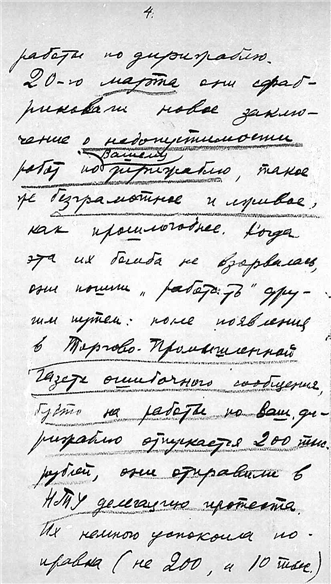 4.
работы по дирижаблю.
20-го марта они сфаб-
риковали новое заклю-
чение о недопустимости
Вашему
работ по дирижаблю, такое
же безграмотное и лживое,
как прошлогоднее. Когда
эта их бомба не взорвалась,
они пошли „работать" дру-
гим путем: после появления
в Торгово-Промышленной
Газете ошибочного сообщения,
будто на работы по Ваш. ди-
рижаблю отпускается 200 тыс.
рублей, они отправили в
НТУ делегацию протеста.
Их немного успокоила по-
правка (не 200, а 10 тыс.)